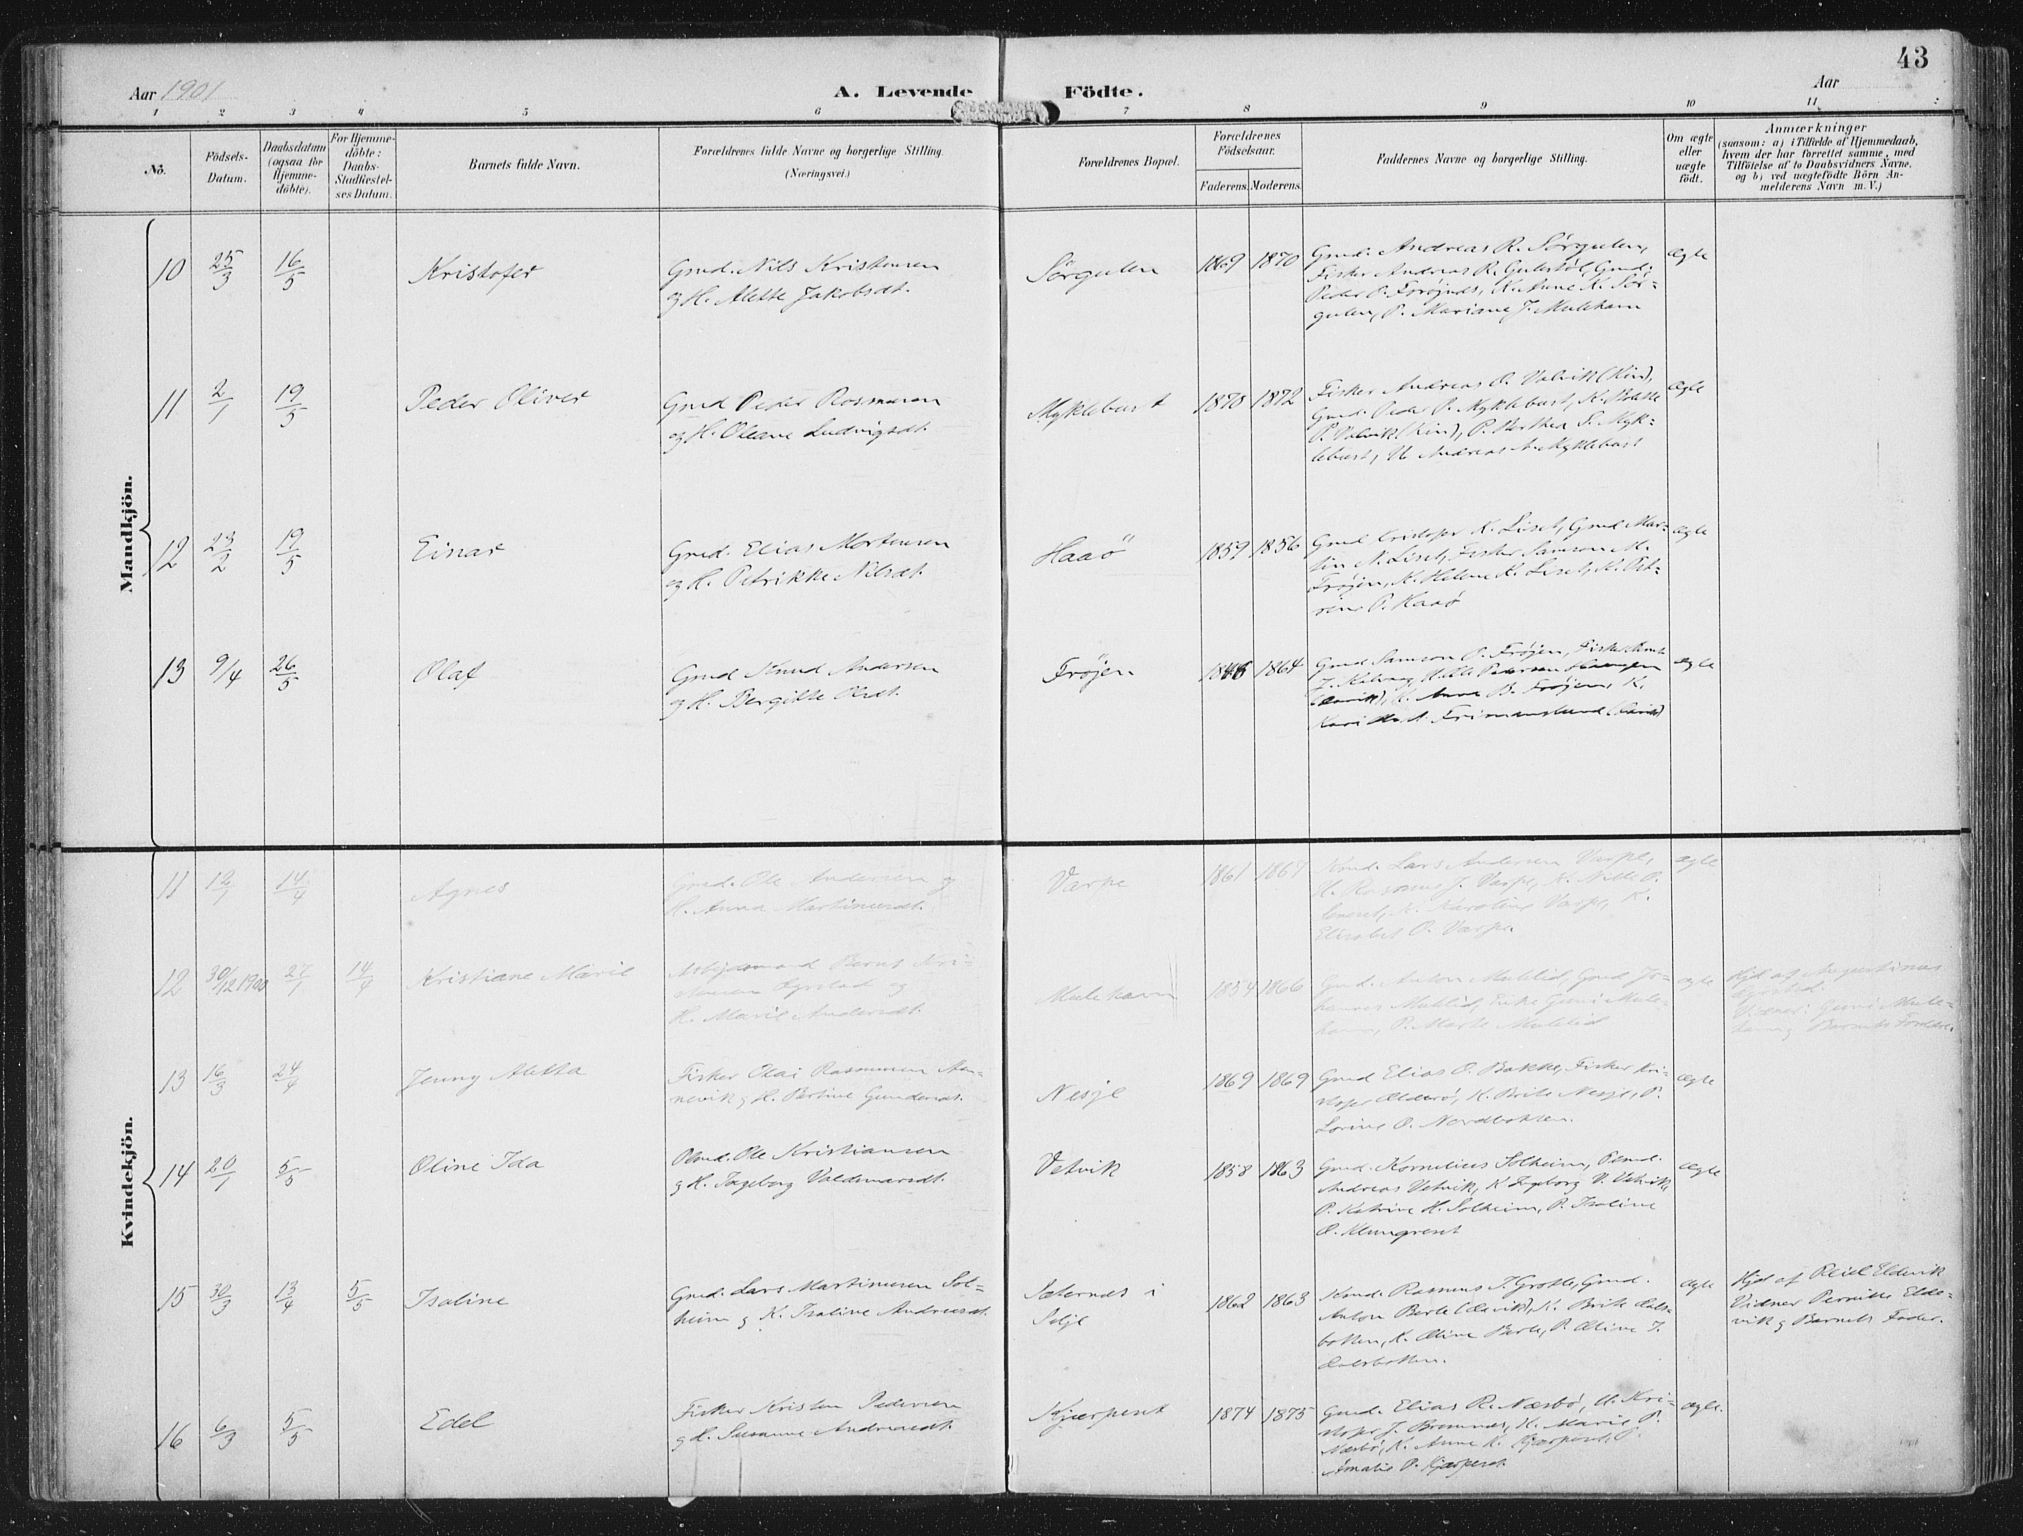 43
Aar 1901
A. Levende Födte.
Aar
1 2 3 4 5 6 7 8 9 10 11
No.
Födsels-
Datum.
Daabsdatum
(ogsaa for
Hjemme-
döbte).
For Hjemme-
döbte:
Daabs-
Stadfæstel-
ses Datum.
Barnets fulde Navn.
Forældrenes fulde Navne og borgerlige Stilling.
(Næringsvei.)
Forældrenes Bopæl.
Forældrenes
Födselsaar.
Faderens. Moderens.
Faddernes Navne og borgerlige Stilling.
Om ægte
eller
uægte
födt.
Anmærkninger
(saasom: a) i Tilfælde af Hjemmedaab,
hvem der har forrettet samme, med
Tilföielse af to Daabsvidners Navne.
og b) ved uægtefödte Börn An-
melderens Navn m. V.)
Mandkjön.
10 25/3 16/5 Kristofer
Gmd. Nils Kristensen
og H. Alette Jakobsdt.
Sørgulen 1869 1870
Gmd. Andreas R. Sørgulen,
Fisker Andreas R. Gulestøl, Gmd.
Peder P. Førøjnds, K. Anne K. Sør-
gulen, P. Mariane J. Mulehamn
ægte
11 2/1 19/5 Peder Oliver
Gmd Peder Rasmusen
og H. Oleane Ludvigsdt.
Myklebust 1870 1872
Fisker Andreas O. Valvik (Kin),
Gmd. Peder P. Myklebust, K.
P. Valvik (Kin), P. Berthea S. Myk-
lebust, U. Andreas A. Myklebust
ægte
12 23/2 19/5 Einar
Gmd. Elias Mortensen
og H. Petrikke Nilsdt.
Haaö 1859 1856
Gmd Kristofer K. Liset, Gmd Mar-
tin N. Liset, Fisker Samson M.
Frøjen, K. Helene K. Liset, K. Pet-
rine P. Haaø
ægte
13 9/4 26/5 Olaf
Gmd Knud Andersen
og H. Bergitte Olsdt.
Frøjen 1864
Gmd. Samson P. Frøjen, Fisker
J. Kalvaag, Pedersen
(Davik), K. Anne B. Frøjen, K.
Kari Frimanslund (Davik)
ægte
Kvindekjön.
11 12/1 14/4 Agnes
Gmd. Ole Andersen og
H. Anna Martinusdt.
Varpe 1861 1867
Kmd. Lars Andersen Varpe,
U. Rasmus J. Varpe, K. Nille P.
K. Karoline Varpe, K.
Elisabet O. Varpe.
ægte
12 30/12 1900 27/1 14/4 Kristiane Marie
Arbejdsmand Bernt Kri-
stensen og
H. Marie Andersdt.
Mulehavn 1854 1866
Gmd. Anton Mulelid, Gmd Jo-
hannes Mulelid, Enke Guni Mule-
havn, P. Marte Mulelid
ægte
Hjd af Augustinus
Vidner: Guni Mule-
havn og Barnets Forældre.
13 16/3 24/4 Jenny Aletta
Fisker Olai Rasmusen Hen-
nevik og H. Bertine Gundersdt.
Nesje 1869 1869
Gmd Elias O. Bakke, Fisker Kri-
stofer Olderø, K. Brite Nesje, P.
Lovine O. Nordbotten.
ægte
14 20/1 5/5 Oline Ida
Pmd. Ole Kristiansen
og H. Ingeborg Valdemarsdt.
Vetvik 1858 1863
Gmd. Kornelius Solheim, Pmd.
Andreas Vetvik, K Ingeborg V. Vetvik,
P. Katrine H. Solheim, P. Isaline
O. Klungreset
ægte
15 30/3 13/4 5/5 Isaline
Gmd. Lars Martinusen Sol-
heim og K. Isaline Andreasdt.
Sæternæs i
Selje 1862 1863
Kmd. Rasmus T. Grotle, Gmd.
Anton Berle (Davik), K. Brite Dals-
botten, K. Oline Berle, P. Oline J.
Dalsbotten.
ægte
Hjd af Eldevik
Vidner Pernille Elde-
vik og Barnets Fader.
16 6/3 5/5 Edel
Fisker Kristen Pedersen
og H. Susanne Andreasdt.
Kjærpeset 1874 1875
Gmd. Elias R. Næsbø, U. Kri-
stofer J. Bremnes, K. Marie P.
Næsbø, K. Anne K. Kjærpeset, P.
Amalie P. Kjærpeset.
ægte.